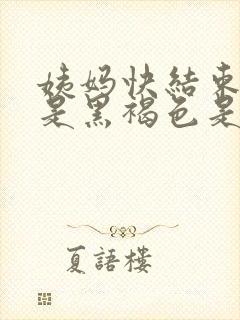 姨妈快結束
是黑褐色是
夏語樓